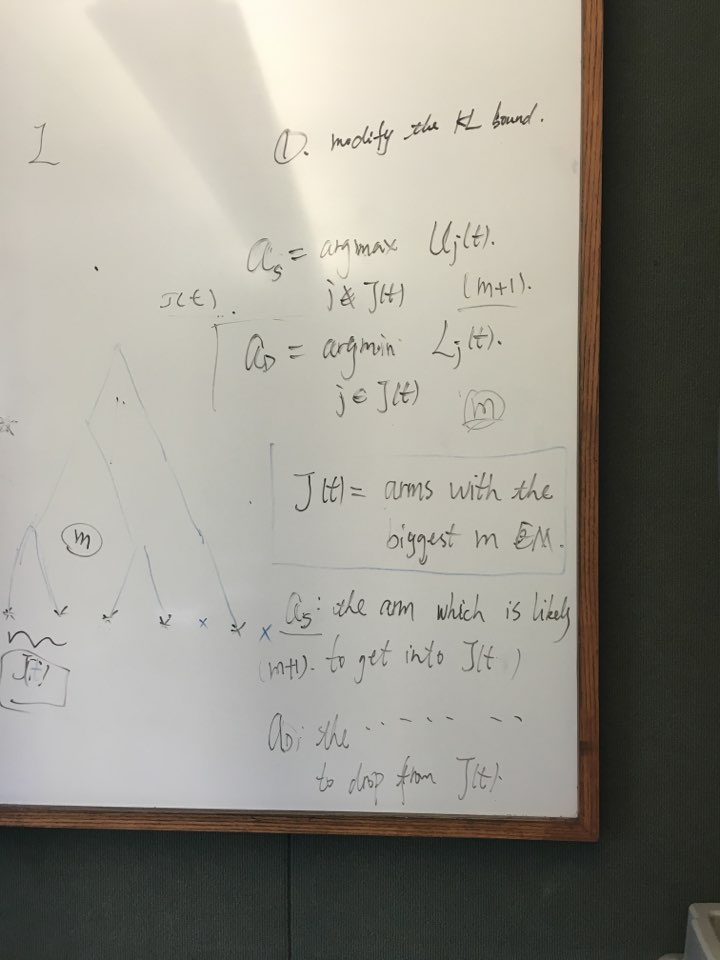 1
①. modify the KL bound.
a_S = argmax U_j(t).
j ∉ J(t) (m+1).
J(t).
a_D = argmin L_j(t).
j ∈ J(t) m
J(t) = arms with the
biggest m EM.
m
a_S: the arm which is likely
(m+1). to get into J(t)
J(t)
a_D: the ........
to drop from J(t).